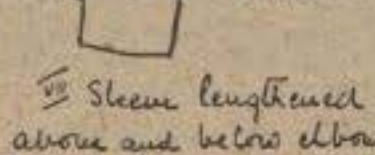 VIII Sleeve lengthened
above and below elbow